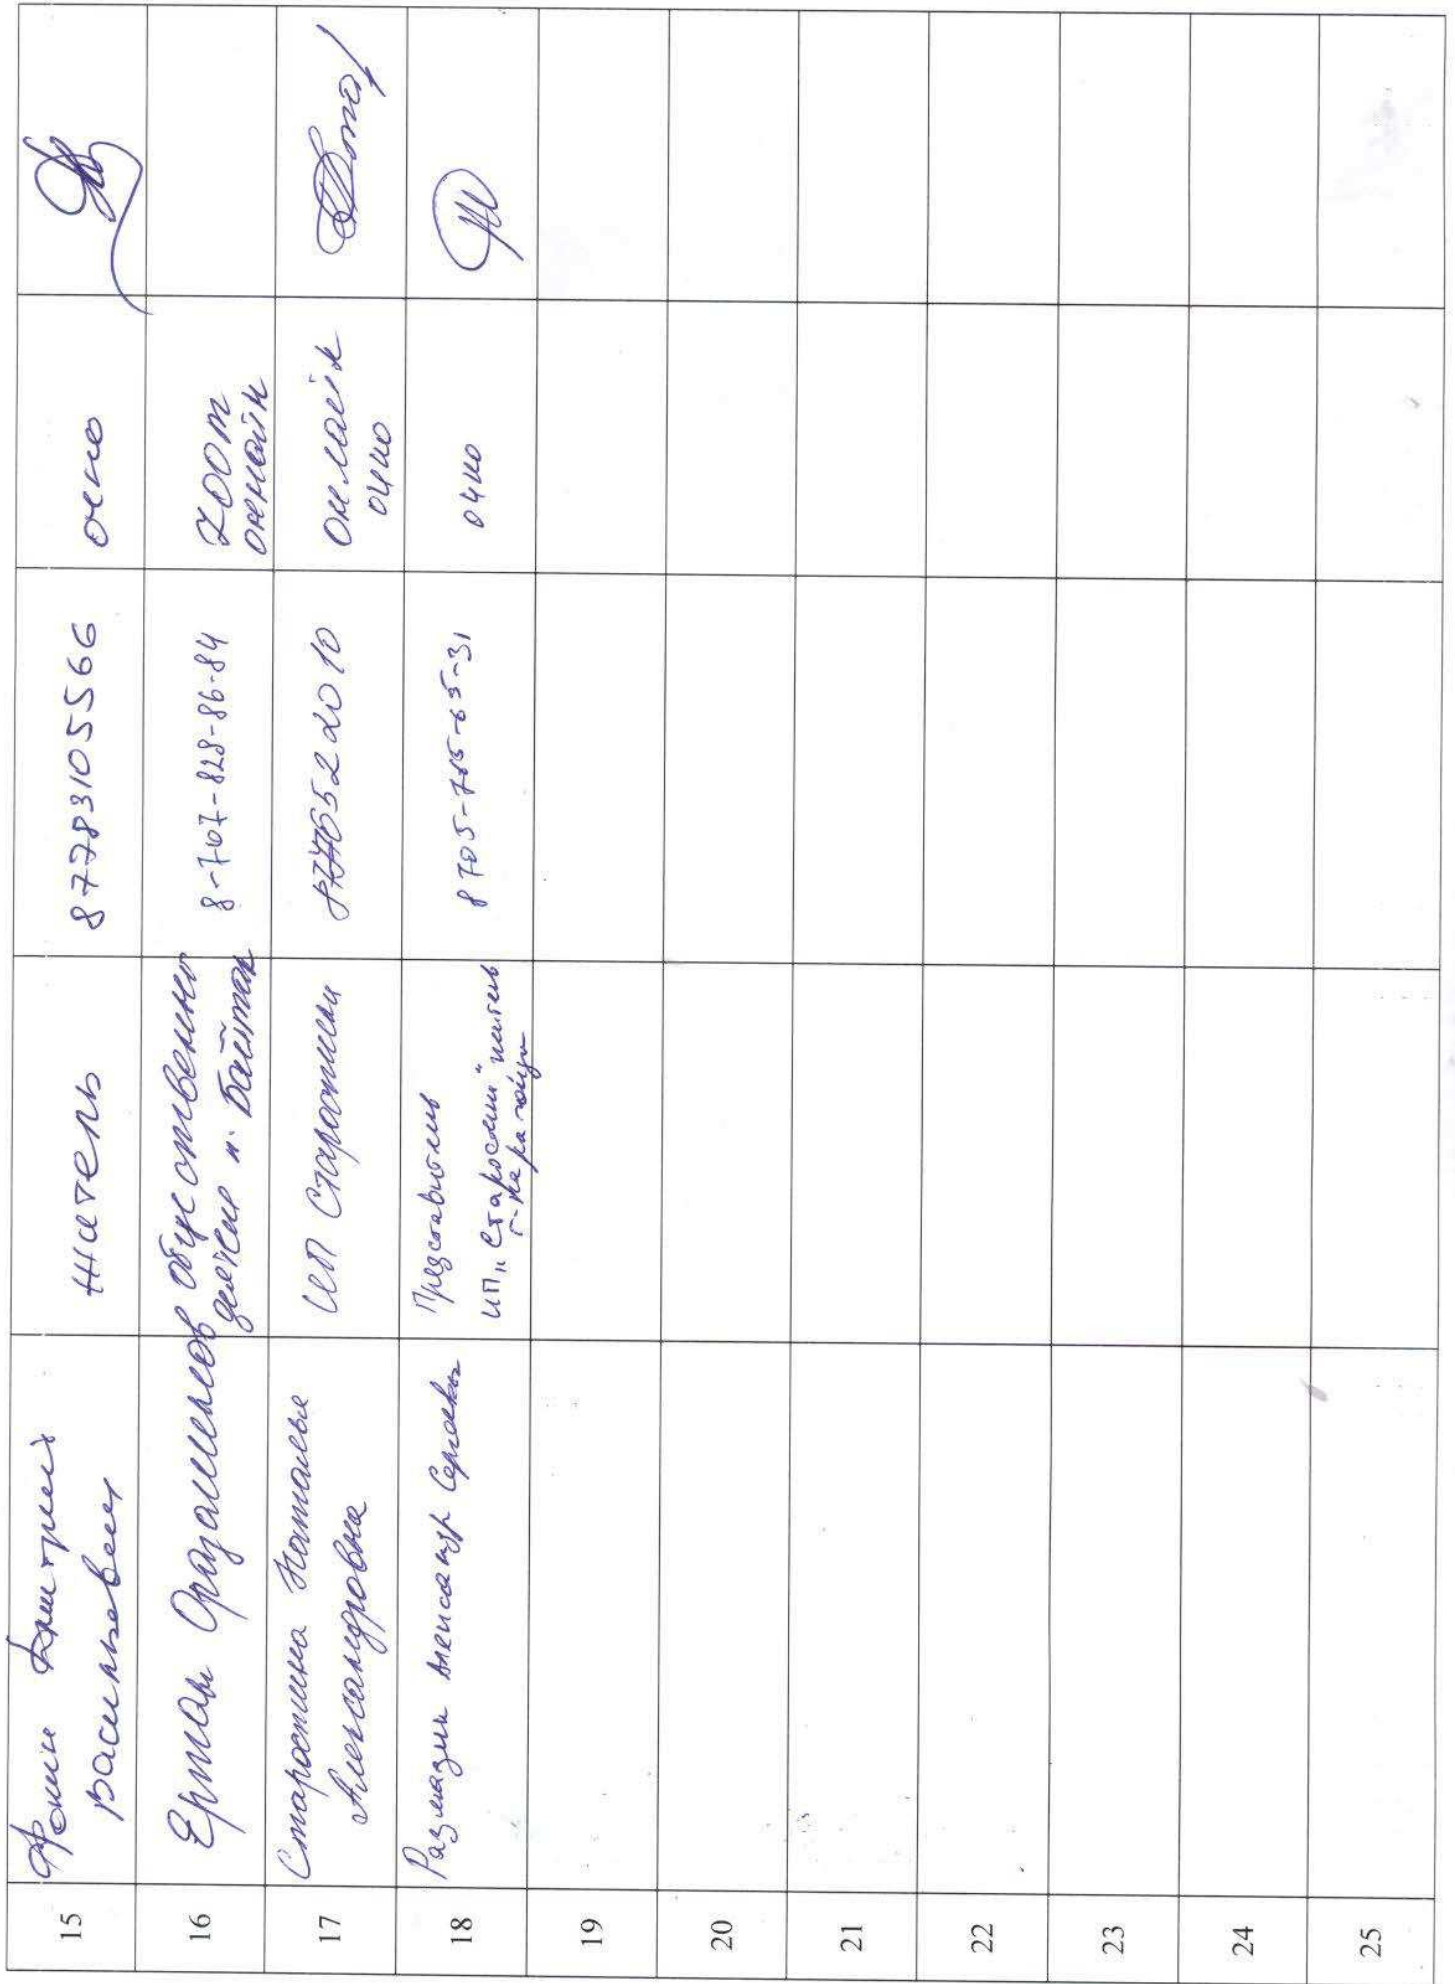 15 Фокин Дмитрий Васильевич житель 87783105566 очно
16 Ерлан Оразалинов Обществено деятель п. Байтак 8-707-828-86-84 ZOOM онлайн
17 Старостина Наталья Александровна ИП Старостин 87765522010 онлайн очно
18 Размазин Александр Сергеевич Представитель ИП "Старостин" житель г. Караганды 8705-765-65-31 очно
19
20
21
22
23
24
25